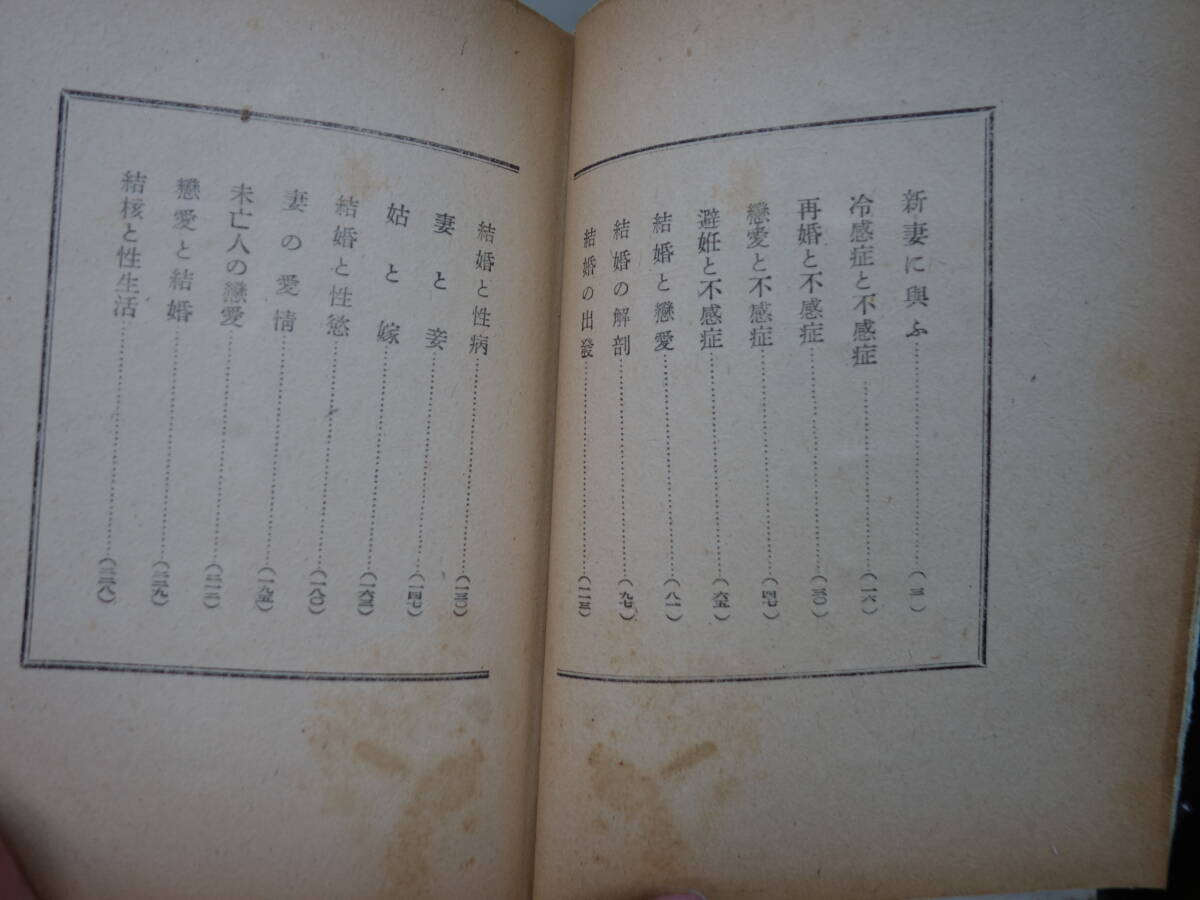 新妻に與ふ……………(三)
冷感症と不感症……………(一六)
再婚と不感症……………(三〇)
戀愛と不感症……………(四七)
避妊と不感症……………(六五)
結婚と戀愛……………(八一)
結婚の解剖……………(九七)
結婚の出發……………(一一三)
結婚と性病……………(一三〇)
妻と妾……………(一四七)
姑と嫁……………(一六三)
結婚と性慾……………(一八〇)
妻の愛情……………(一九五)
未亡人の戀愛……………(二一二)
戀愛と結婚……………(二二九)
結核と性生活……………(二三八)